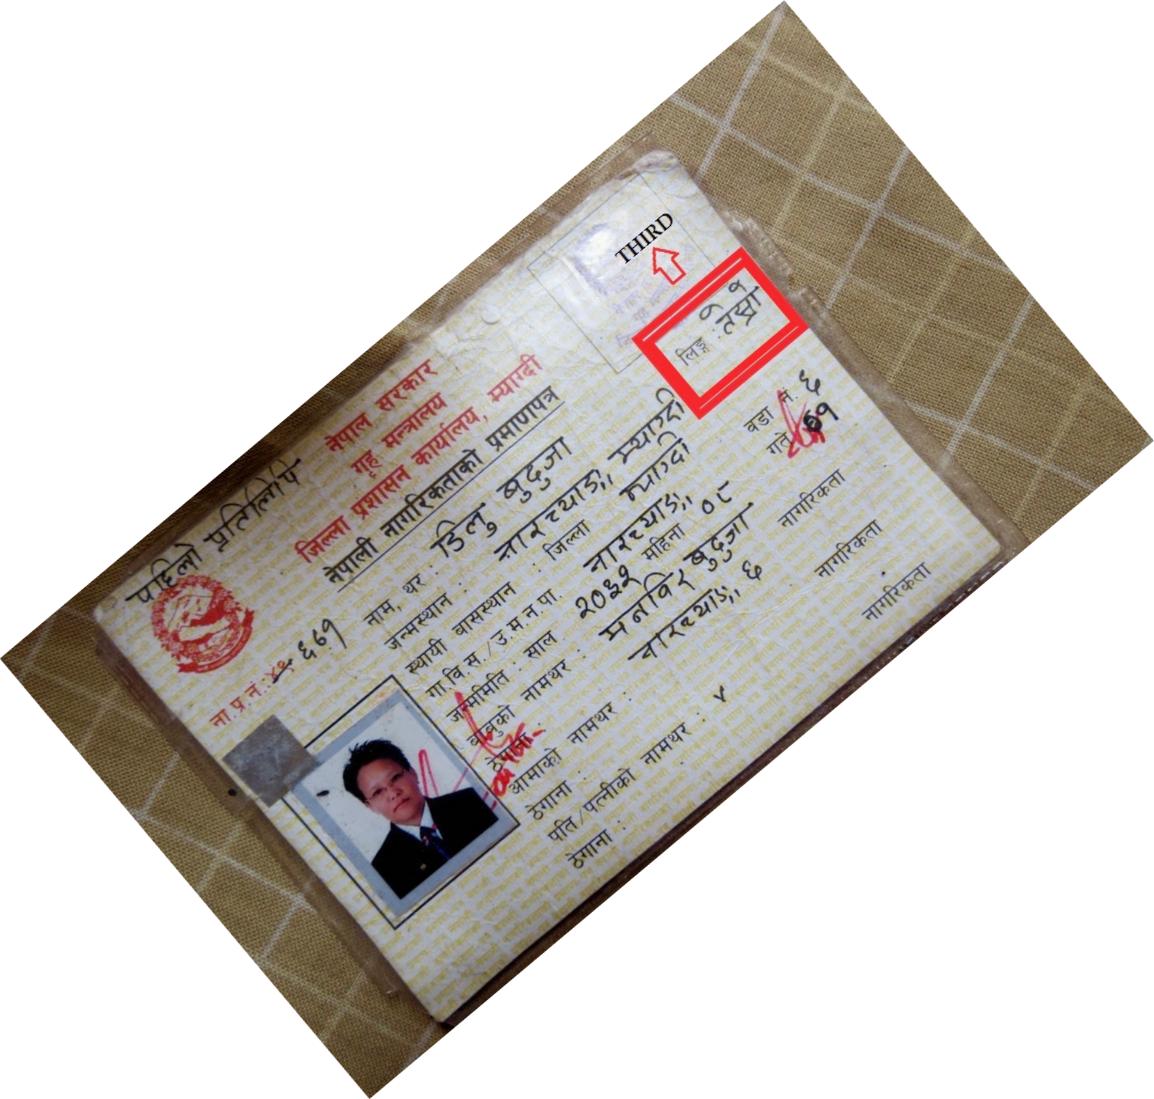 पहिलो प्रतिलिपि
नेपाल सरकार
गृह मन्त्रालय
जिल्ला प्रशासन कार्यालय, म्याग्दी
नेपाली नागरिकताको प्रमाणपत्र
THIRD
ना.प्र.नं.: ६७१
लिङ्ग : तेस्रो
नाम, थर : डिलु बुदुजा
जन्मस्थान : नारच्याङ, म्याग्दी
स्थायी बासस्थान : जिल्ला म्याग्दी
गा.वि.स./उ.म.न.पा. नारच्याङ, वडा नं. ६
जन्ममिति : साल २०३२ महिना ०८ गते ०१
बाबुको नामथर : मनविर बुदुजा नागरिकता
ठेगाना : नारच्याङ, ६
आमाको नामथर : नागरिकता
ठेगाना :
पति/पत्नीको नामथर : नागरिकता
ठेगाना :